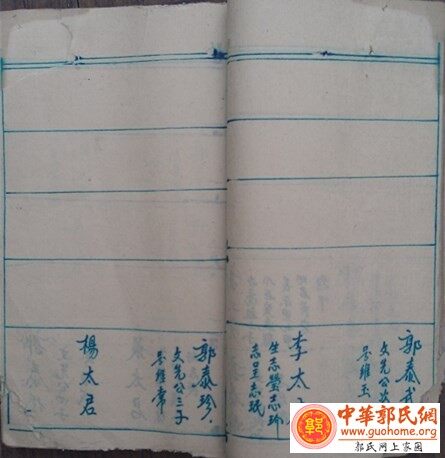 郭泰
文先公次
号維玉
李太
生志瑩志玠
志呈志珉
郭泰珍
文先公三子
号維
楊太君
郭
中華郭氏網
www.guohome.org
郭氏网上家园